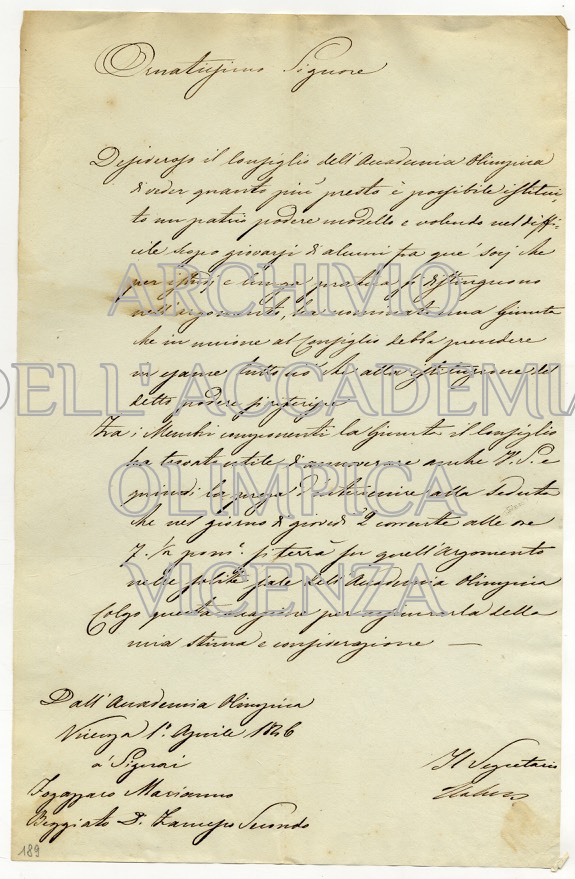 Ornatissimo Signore
Desideroso il Consiglio dell'Accademia Olimpica
di veder quanto più presto è possibile istitui-
to un patrio podere modello e volendo nel diffi-
cile scopo giovarsi di alcuni fra que' socj che
per studj e lunga pratica si distinguono
nell'argomento, ha nominata una Giunta
che in unione al Consiglio debba prendere
in esame tutto ciò che alla istituzione del
detto podere si riferisce
Tra i Membri componenti la Giunta il Consiglio
ha trovato utile di annoverare anche V. S. e
quindi la prega d'intervenire alla seduta
che nel giorno di giovedì 2 corrente alle ore
7. 1/2 pom.e si terrà su quell'Argomento
nelle solite sale dell'Accademia Olimpica
Colgo questa occasione per assicurarla della
mia stima e considerazione
Dall'Accademia Olimpica
Vicenza 1.o Aprile 1846
a' Signori
Il Segretario
Fogazzaro Marianno
Beggiato D. Francesco Secondo
189
ARCHIVIO
DELL'ACCADEMIA
OLIMPICA
VICENZA